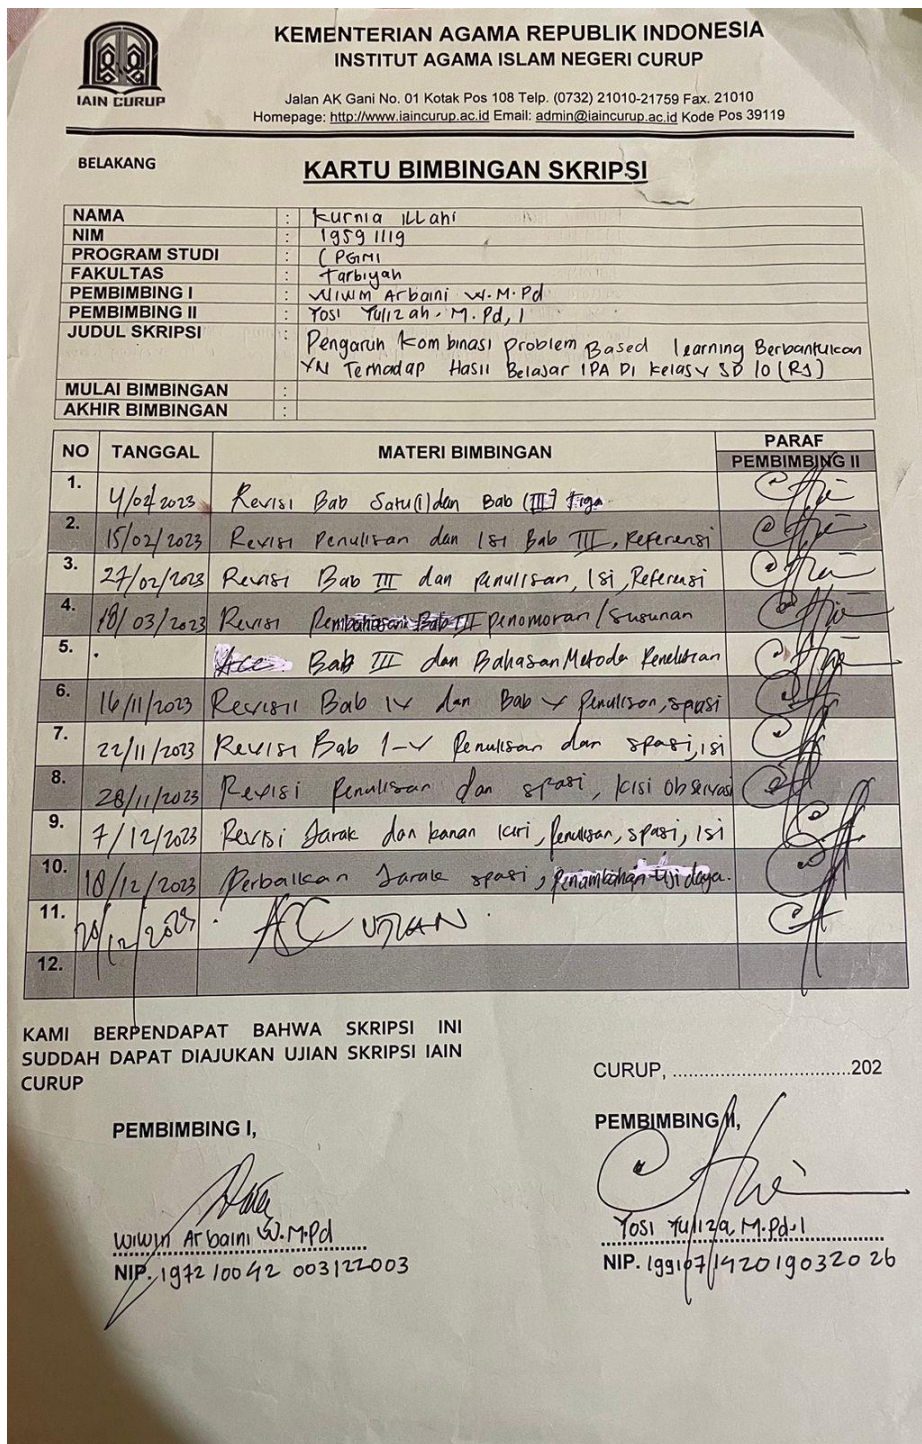 KEMENTERIAN AGAMA REPUBLIK INDONESIA
INSTITUT AGAMA ISLAM NEGERI CURUP
IAIN CURUP
Jalan AK Gani No. 01 Kotak Pos 108 Telp. (0732) 21010-21759 Fax. 21010
Homepage: http://www.iaincurup.ac.id Email: admin@iaincurup.ac.id Kode Pos 39119
BELAKANG
KARTU BIMBINGAN SKRIPSI
NAMA : Kurnia Illahi
NIM : 19591119
PROGRAM STUDI : PGMI
FAKULTAS : Tarbiyah
PEMBIMBING I : Wiwin Arbaini W. M.Pd
PEMBIMBING II : Yosi Yulizah. M.Pd, I
JUDUL SKRIPSI : Pengaruh Kombinasi Problem Based learning Berbantukan
Terhadap Hasil Belajar IPA Di Kelas V SD 10 (RJ)
MULAI BIMBINGAN :
AKHIR BIMBINGAN :
NO TANGGAL MATERI BIMBINGAN PARAF
PEMBIMBING II
1. 4/02/2023 Revisi Bab Satu(I) dan Bab (III) tiga
2. 15/02/2023 Revisi Penulisan dan Isi Bab III, Referensi
3. 27/02/2023 Revisi Bab III dan penulisan, Isi, Referensi
4. 18/03/2023 Revisi penomoran/susunan
5. Acc Bab III dan Bahasan Metode Penelitian
6. 16/11/2023 Revisi Bab IV dan Bab V Penulisan, spasi
7. 22/11/2023 Revisi Bab I-V Penulisan dan spasi, isi
8. 28/11/2023 Revisi Penulisan dan spasi, kisi observasi
9. 7/12/2023 Revisi Jarak dan kanan kiri, Penulisan, spasi, isi
10. 18/12/2023 Perbaikan Jarak spasi, Penambahan Uji daya.
11. 20/12/2023 ACC UJIAN
12.
KAMI BERPENDAPAT BAHWA SKRIPSI INI
SUDDAH DAPAT DIAJUKAN UJIAN SKRIPSI IAIN
CURUP
CURUP, ..................................202
PEMBIMBING I,
PEMBIMBING II,
Wiwin Arbaini W. M.Pd
NIP. 197210042003122003
Yosi Yuliza, M.Pd.I
NIP. 199107142019032026